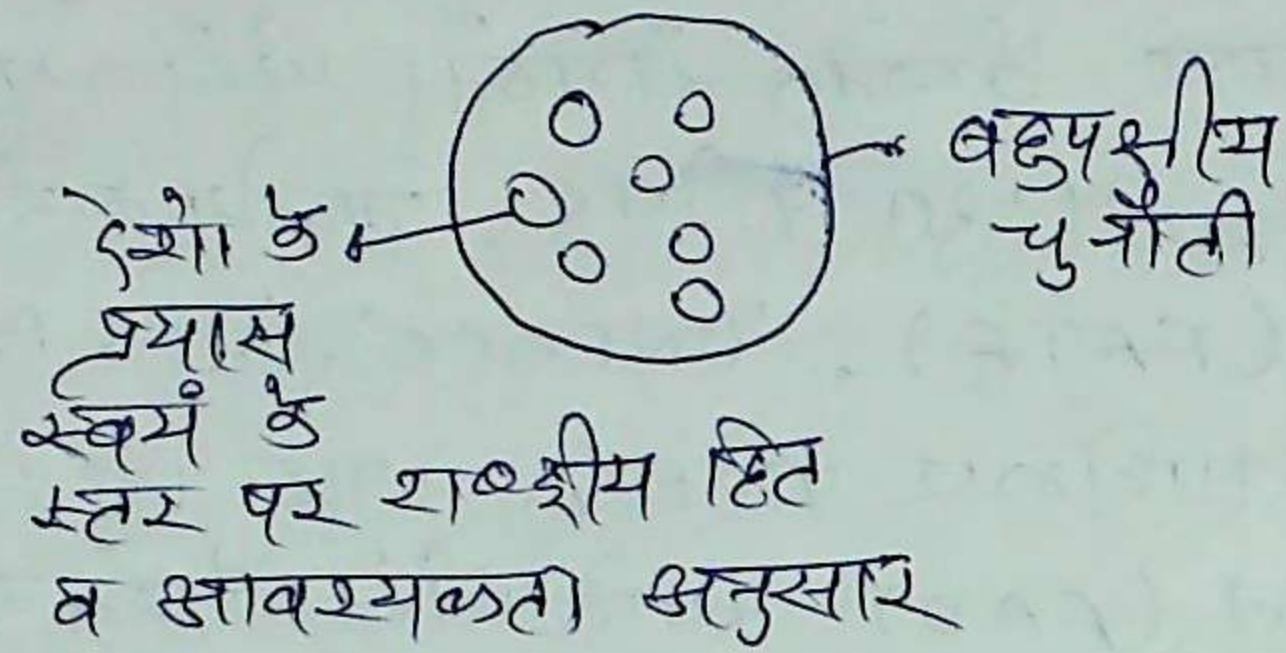 देशों के
प्रयास
स्वयं के
स्तर पर राष्ट्रीय हित
व आवश्यकता अनुसार
बहुपक्षीय
चुनौती